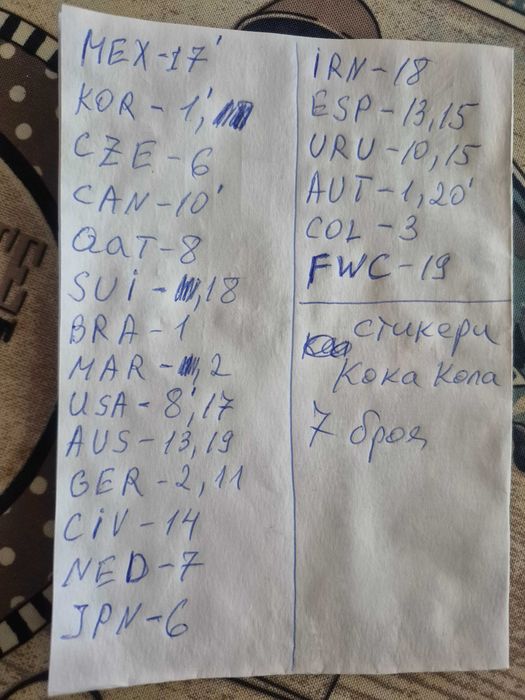 MEX-17'
KOR - 1',
CZE - 6
CAN - 10'
Qat - 8
SUi - , 18
BRA - 1
MAR - , 2
USA - 8', 17
AUS - 13, 19
GER - 2, 11
CiV - 14
NED - 7
JPN - 6
iRN - 18
ESP - 13, 15
URU - 10, 15
AUT - 1, 20'
COL - 3
FWC - 19
стикери
Кока Кола
7 броя